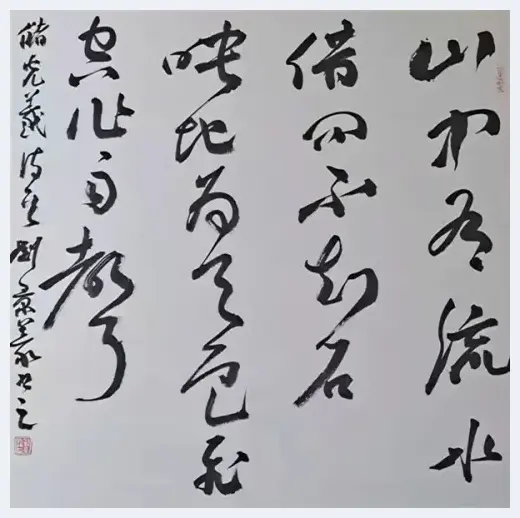 山中有流水
借问不知名
映地为天色飞
空作雨聲
储光羲诗 刘 书之